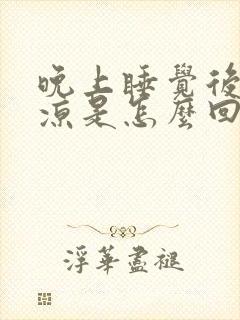 晚上睡覺後
涼是怎麼回
浮華盡褪